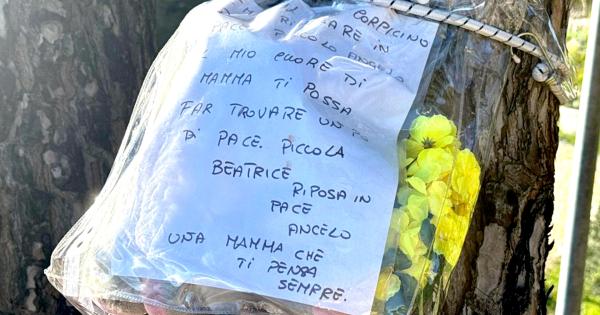 CORPICINO
RI ARE IN
PACE PICCOLO ANGELO
IL MIO CUORE DI
MAMMA TI POSSA
FAR TROVARE UN
DI PACE. PICCOLA
BEATRICE
RIPOSA IN
PACE
ANGELO
UNA MAMMA CHE
TI PENSA
SEMPRE.